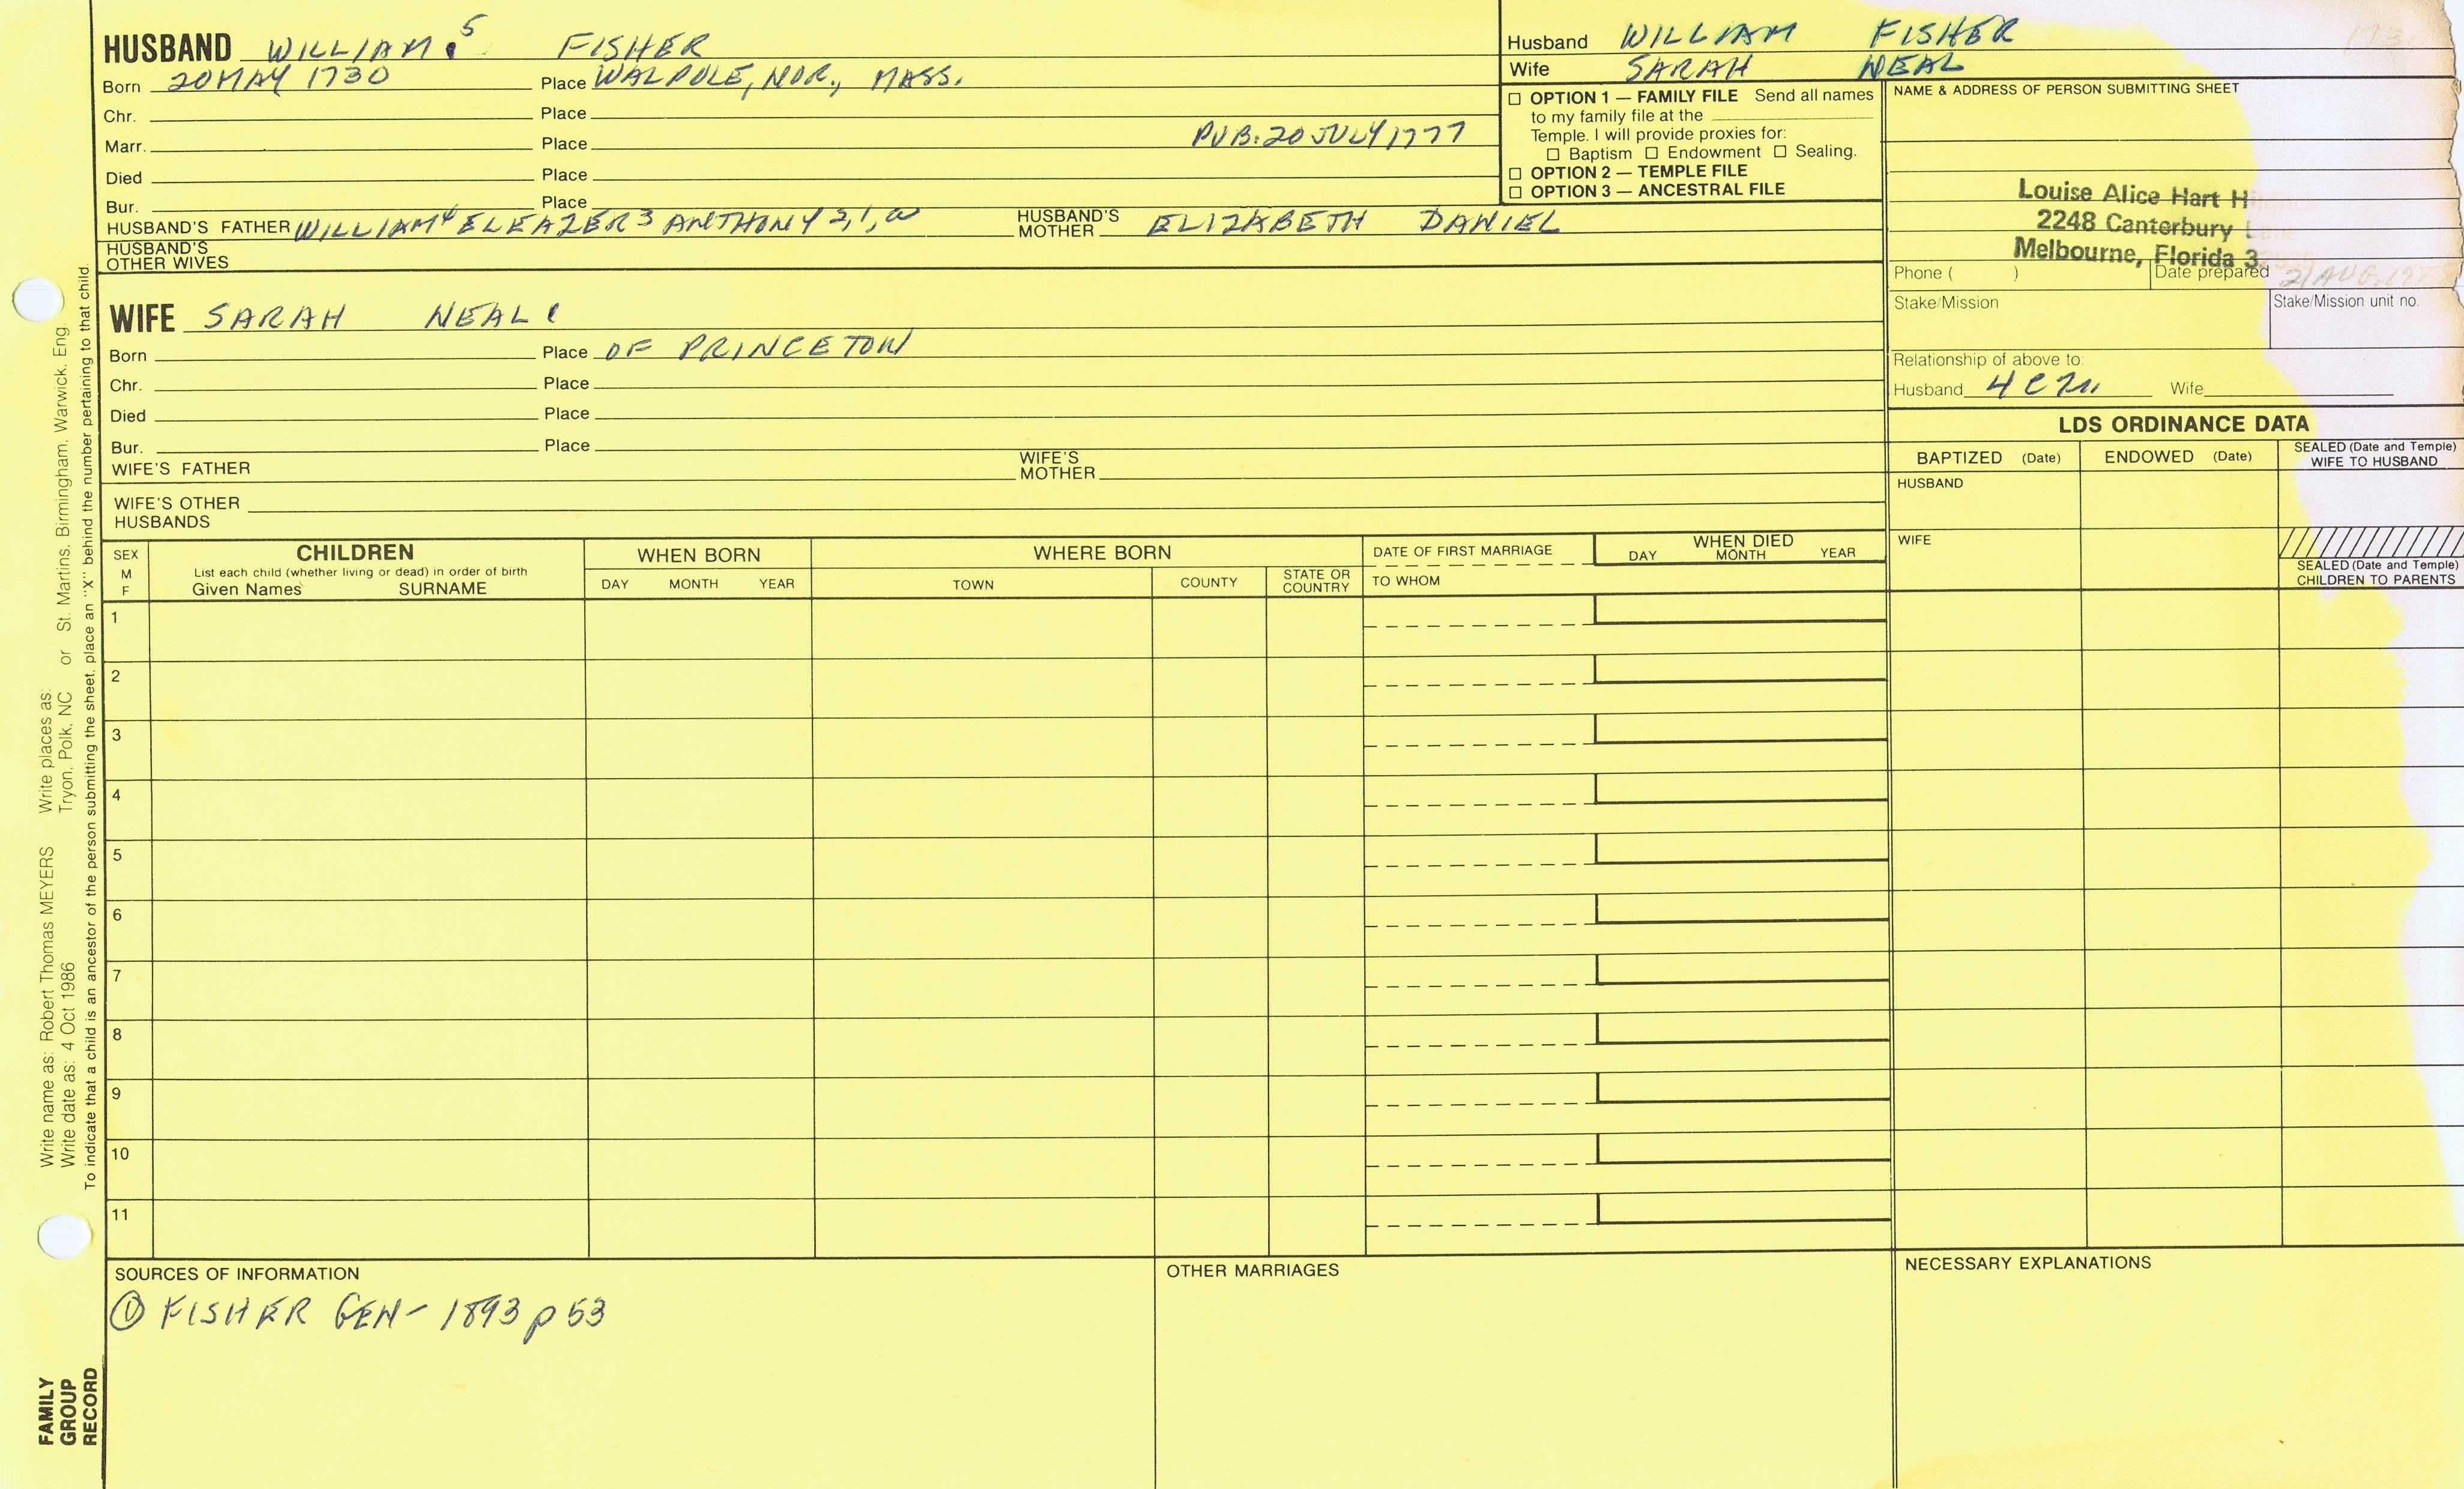 HUSBAND WILLIAM 5 FISHER
Born 20 MAY 1730 Place WALPOLE, NOR., MASS.
Chr. Place
Marr. Place PUB: 20 JULY 1777
Died Place
Bur. Place
HUSBAND'S FATHER WILLIAM 4 ELEAZER 3 ANTHONY 2, 1, HUSBAND'S MOTHER ELIZABETH DANIEL
HUSBAND'S OTHER WIVES
Husband WILLIAM FISHER
Wife SARAH NEAL
☐ OPTION 1 — FAMILY FILE Send all names
to my family file at the
Temple. I will provide proxies for:
☐ Baptism ☐ Endowment ☐ Sealing.
☐ OPTION 2 — TEMPLE FILE
☐ OPTION 3 — ANCESTRAL FILE
NAME & ADDRESS OF PERSON SUBMITTING SHEET
Louise Alice Hart H
2248 Canterbury L
Melbourne, Florida 3
Phone ( ) Date prepared 21 AUG. 19
Stake/Mission Stake/Mission unit no.
Relationship of above to:
Husband 4 C Wife
WIFE SARAH NEAL
Born Place OF PRINCETON
Chr. Place
Died Place
Bur. Place
WIFE'S FATHER WIFE'S MOTHER
WIFE'S OTHER
HUSBANDS
LDS ORDINANCE DATA
BAPTIZED (Date) ENDOWED (Date) SEALED (Date and Temple) WIFE TO HUSBAND
HUSBAND
WIFE
SEALED (Date and Temple)
CHILDREN TO PARENTS
SEX
M
F
CHILDREN
List each child (whether living or dead) in order of birth
Given Names SURNAME
WHEN BORN
DAY MONTH YEAR
WHERE BORN
TOWN COUNTY STATE OR COUNTRY
DATE OF FIRST MARRIAGE
TO WHOM
WHEN DIED
DAY MONTH YEAR
1
2
3
4
5
6
7
8
9
10
11
SOURCES OF INFORMATION
① FISHER GEN- 1893 p 53
OTHER MARRIAGES
NECESSARY EXPLANATIONS
Write name as: Robert Thomas MEYERS Write places as:
Write date as: 4 Oct 1986 Tryon, Polk, NC or St. Martins, Birmingham, Warwick, Eng.
To indicate that a child is an ancestor of the person submitting the sheet, place an "X" behind the number pertaining to that child.
FAMILY
GROUP
RECORD